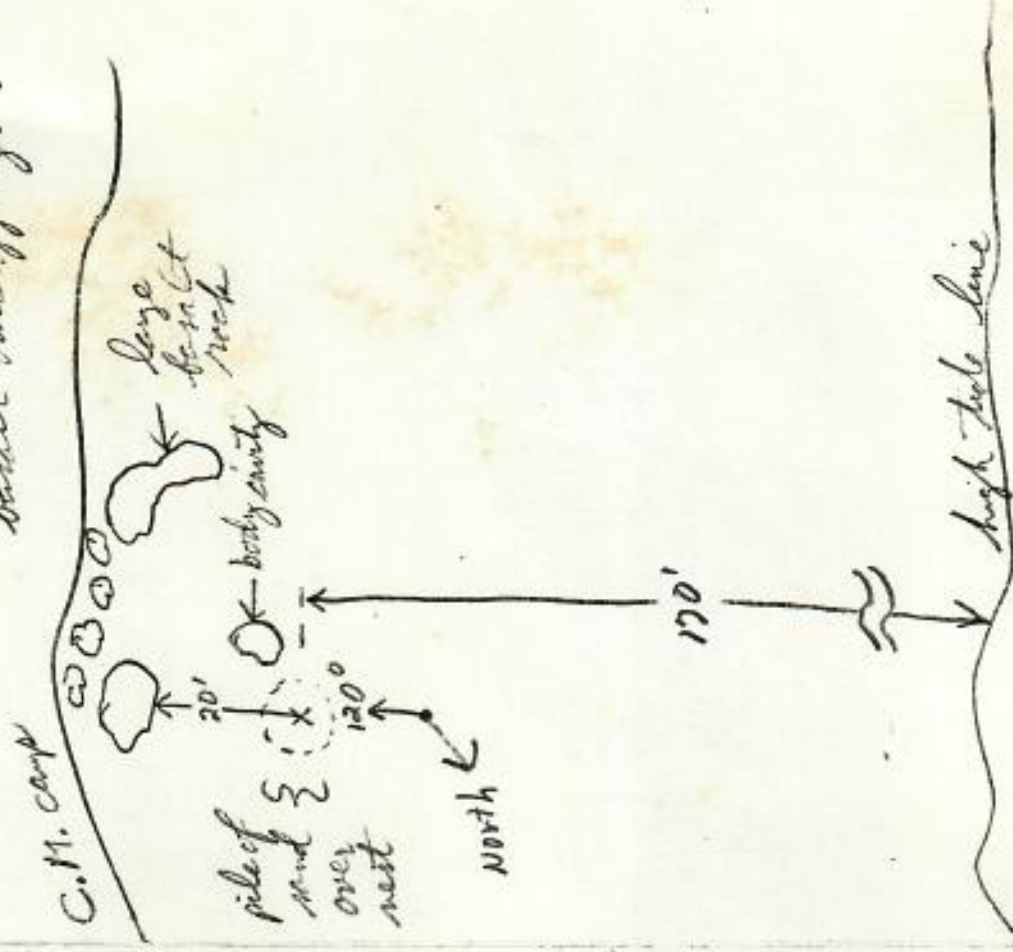 C.M. camp
large
basalt
rock
body cavity
20'
120°
pile of
sand
over
nest
North
170'
high tide line